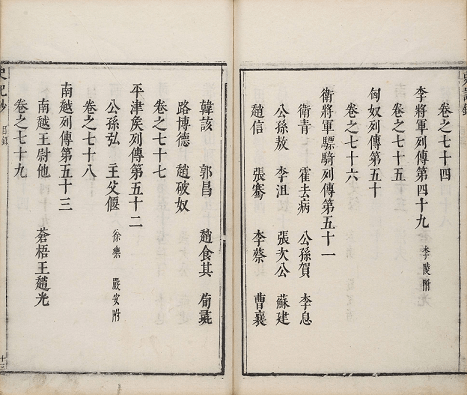 卷之七十四
李將軍列傳第四十九 李陵附
卷之七十五
匈奴列傳第五十
卷之七十六
衛將軍驃騎列傳第五十一
衛青 霍去病 公孫賀 李息
公孫敖 李沮 張次公 蘇建
趙信 張騫 李蔡 曹襄
韓該 郭昌 趙食其 荀彘
路博德 趙破奴
卷之七十七
平津矦列傳第五十二
公孫弘 主父偃 徐樂 嚴安附
卷之七十八
南越列傳第五十三
南越王尉他 蒼梧王趙光
卷之七十九
史記抄 目錄